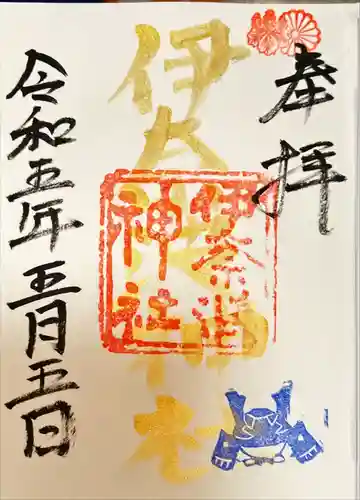 奉拝
伊
神社
伊奈
神社
令和五年五月五日